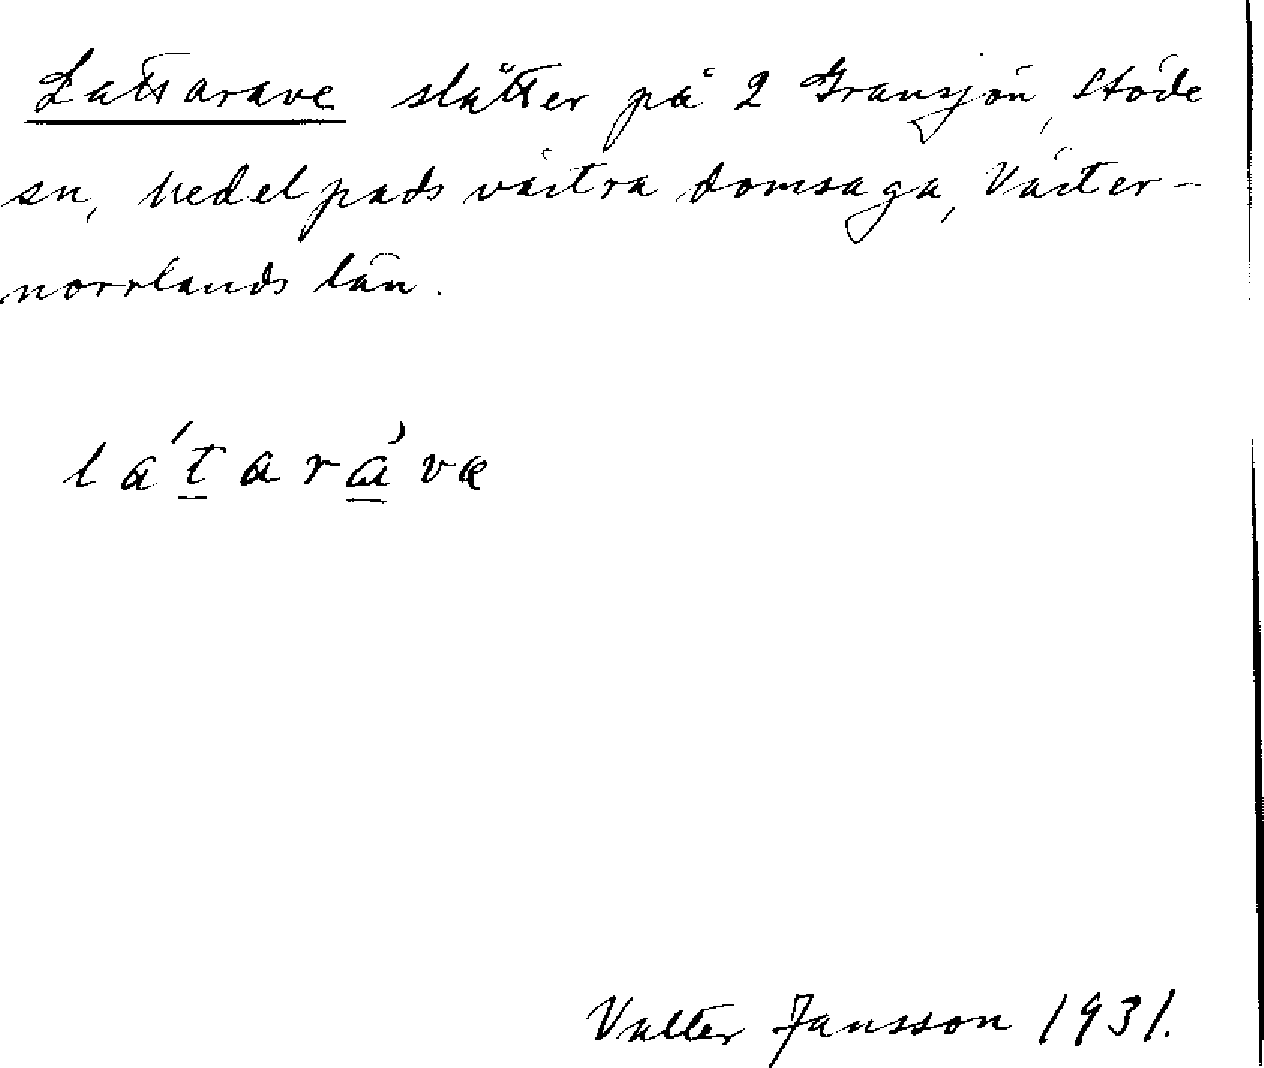 Lattarave slåtter på 2 Gransjön, Stöde
sn, Medelpads västra domsaga, Väster-
norrlands län.
la´taràvæ
Valter Jansson 1931.